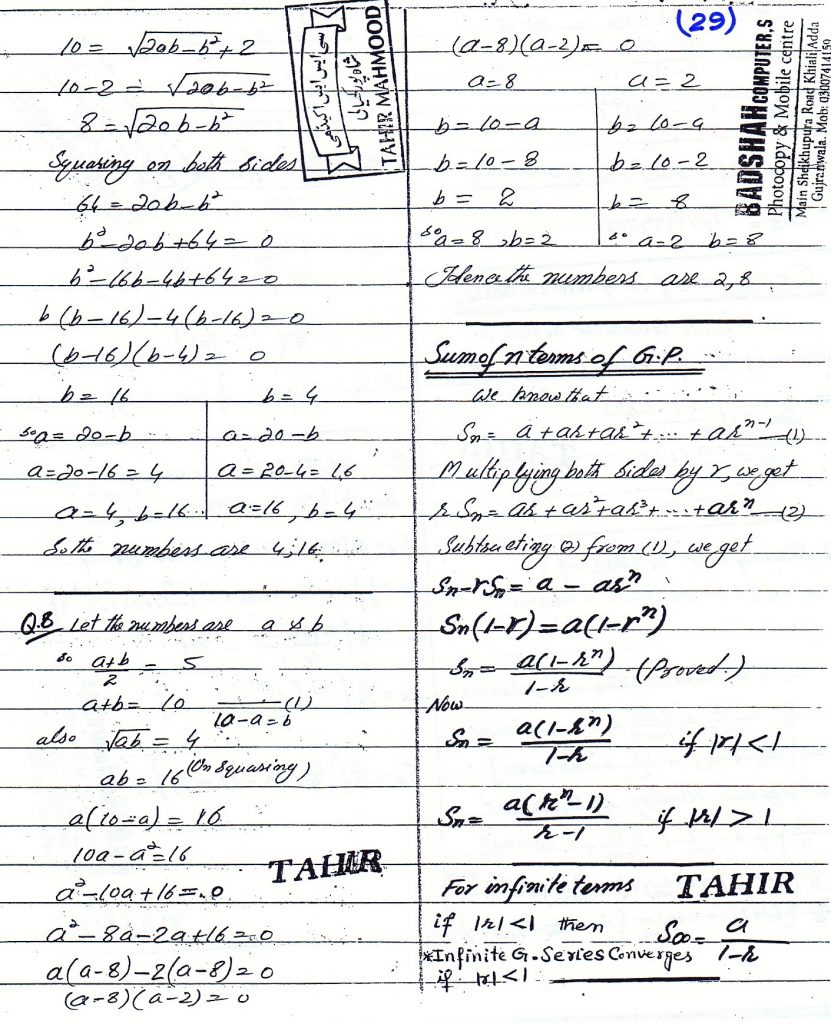 (29)
10 = √2ab-b² + 2
10-2 = √20b-b²
8 = √20b-b²
Squaring on both sides
64 = 20b-b²
b²-20b+64 = 0
b²-16b-4b+64=0
b(b-16)-4(b-16)=0
(b-16)(b-4)= 0
b= 16 b= 4
so a= 20-b a=20-b
a=20-16 = 4 a = 20-4= 16
a=4, b=16 a=16, b=4
So the numbers are 4,16
Q.8 Let the numbers are a & b
so a+b/2 = 5
a+b= 10 (1)
10-a=b
also √ab = 4
ab = 16 (On Squaring)
a(10-a) = 16
10a-a²=16
a²-10a+16=0
a²-8a-2a+16=0
a(a-8)-2(a-8)=0
(a-8)(a-2)=0
TAHIR
سی ایس ایس اکیڈمی
شاہپور کھیالی
TAHIR MAHMOOD
(a-8)(a-2)= 0
a=8 a=2
b=10-a b=10-a
b=10-8 b=10-2
b= 2 b= 8
so a=8, b=2 so a=2 b=8
Hence the numbers are 2,8
BADSHAH COMPUTER,S
Photocopy & Mobile centre
Main Sheikhupura Road Khiali Adda
Gujranwala. Mob: 03007414150
Sum of n terms of G.P.
We know that
Sn= a+ar+ar²+ ... + arⁿ⁻¹ (1)
Multiplying both sides by r, we get
rSn= ar+ar²+ar³+ ... +arⁿ (2)
Subtracting (2) from (1), we get
Sn-rSn= a - arⁿ
Sn(1-r)=a(1-rⁿ)
Sn= a(1-rⁿ)/1-r (Proved.)
Now
Sn= a(1-rⁿ)/1-r if |r|<1
Sn= a(rⁿ-1)/r-1 if |r|>1
For infinite terms TAHIR
if |r|<1 then S∞= a/1-r
*Infinite G.Series Converges
if |r|<1